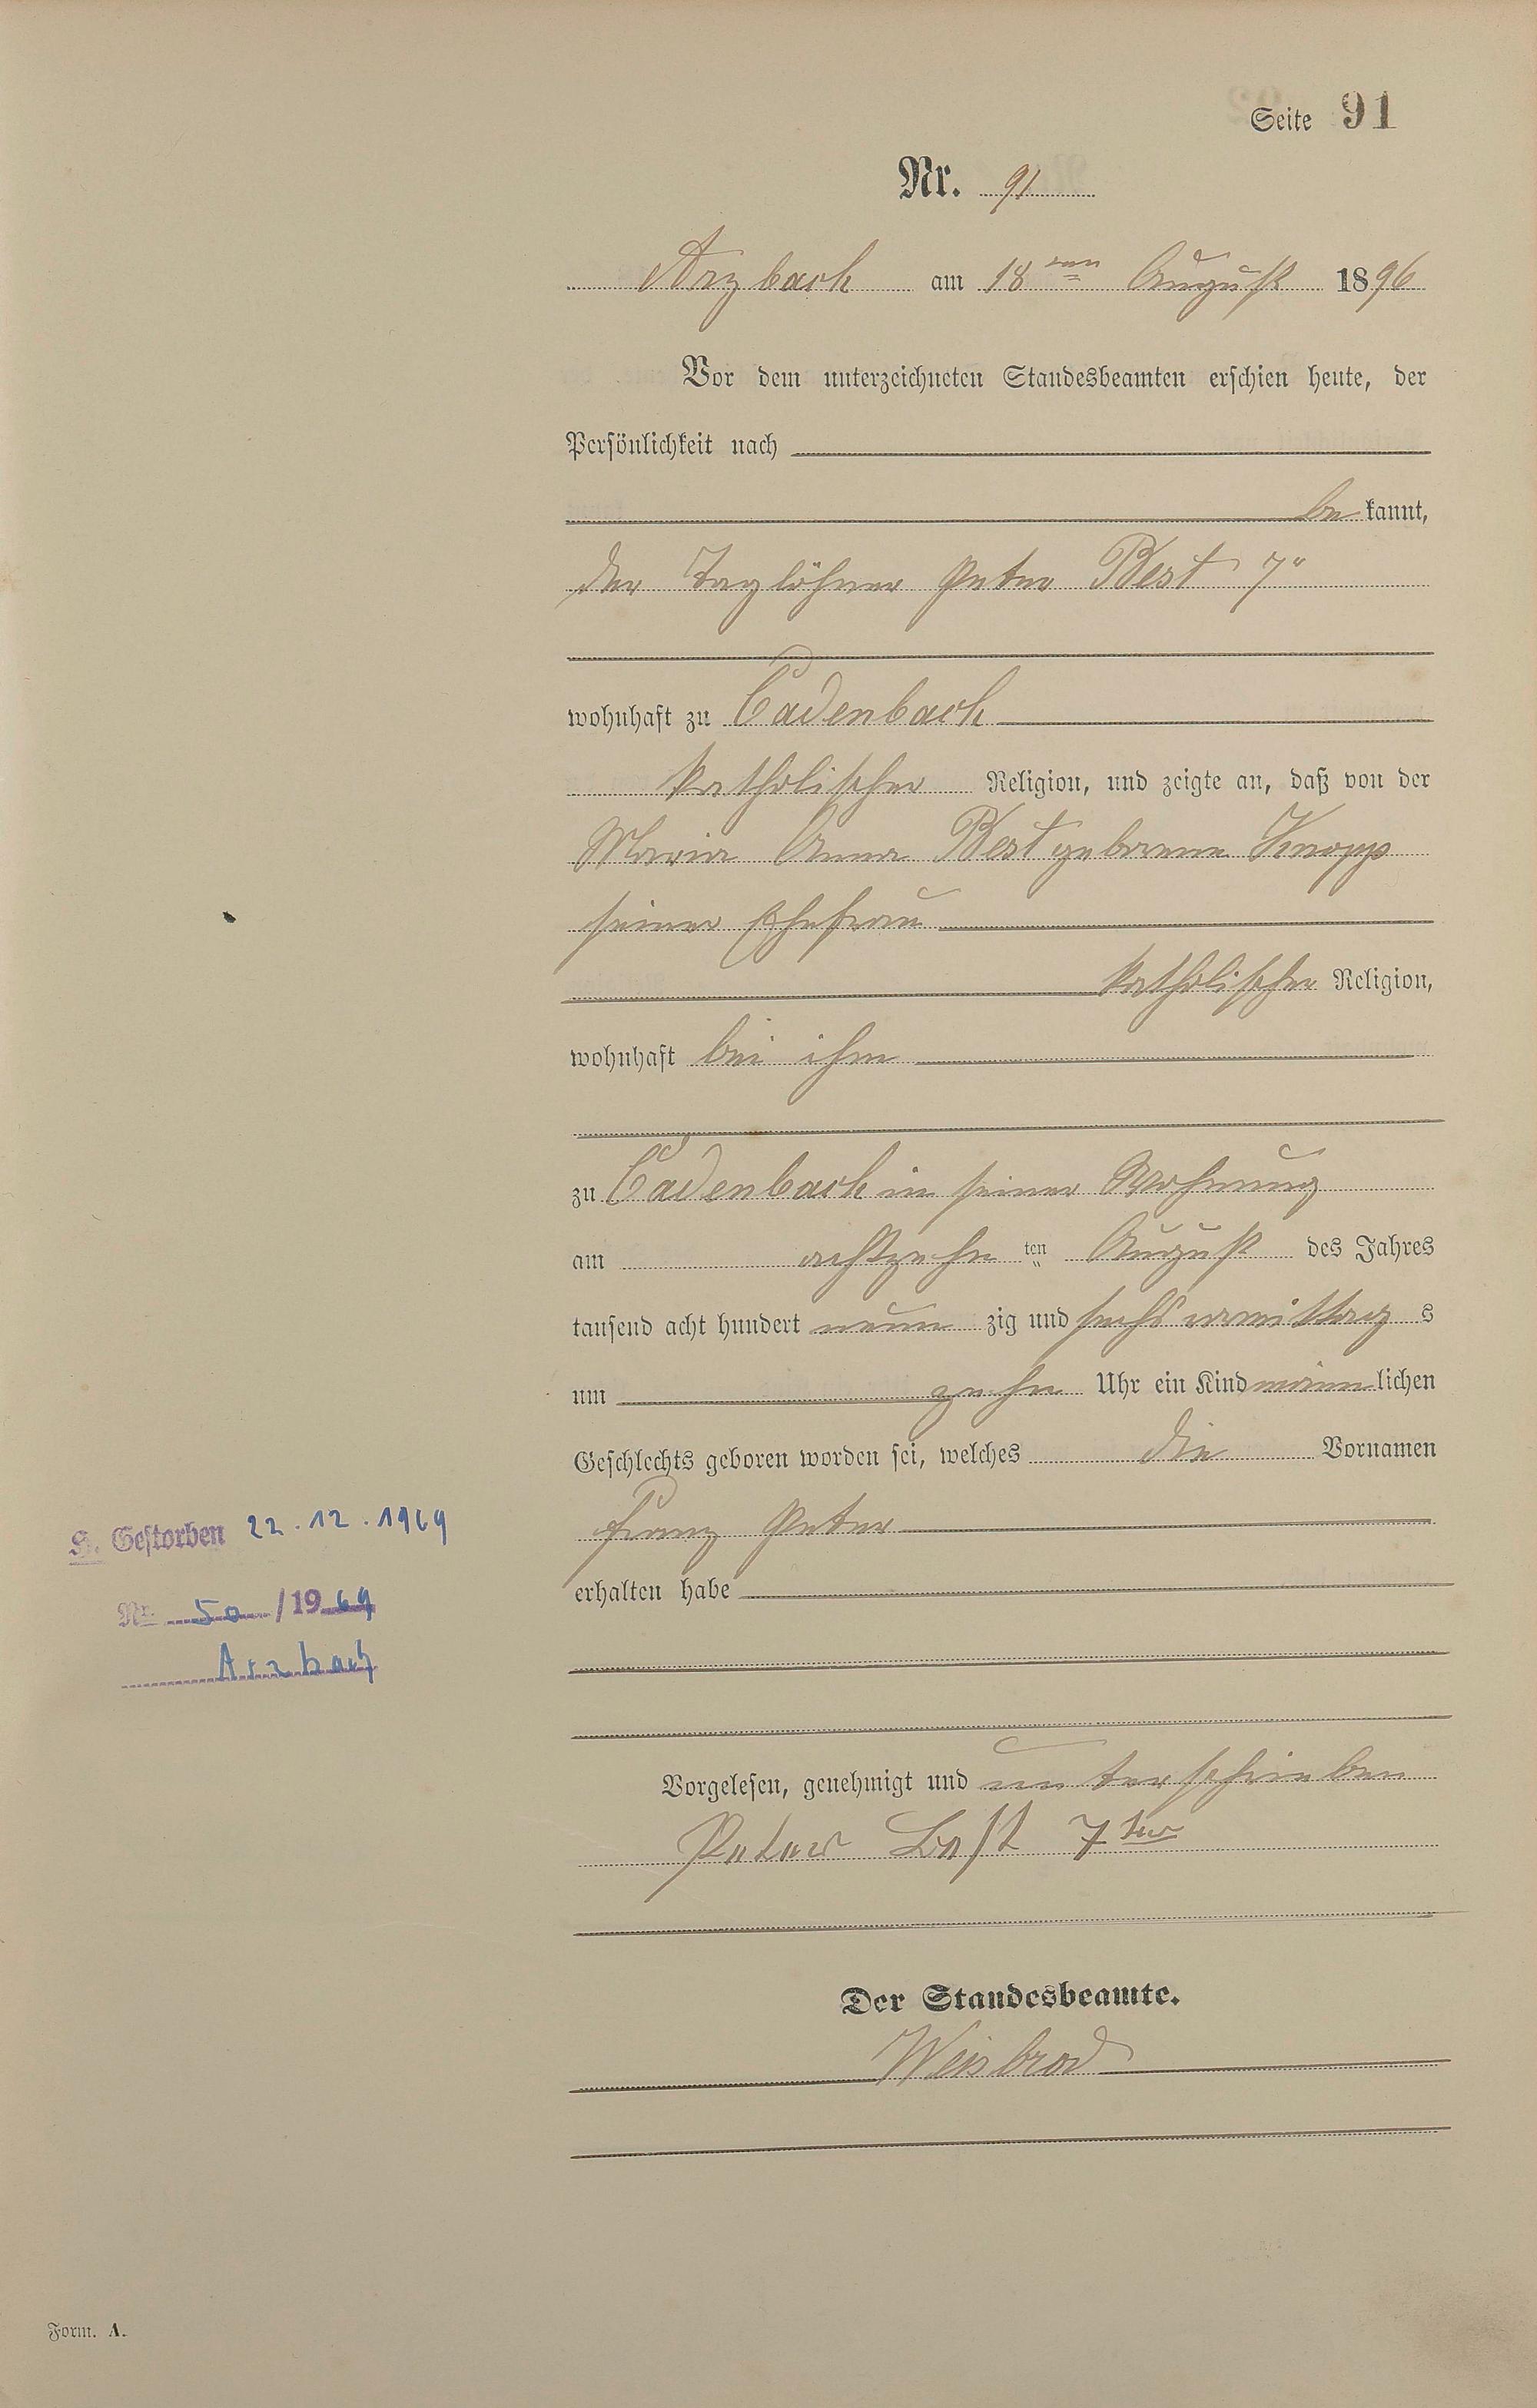 Seite 91
Nr. 91
Arzbach am 18ten August 1896
Vor dem unterzeichneten Standesbeamten erschien heute, der
Persönlichkeit nach
be kannt,
der Taglöhner Peter Best 7r
wohnhaft zu Cadenbach
katholischer Religion, und zeigte an, daß von der
Maria Anna Best geborene Knopp
seiner Ehefrau
katholischer Religion,
wohnhaft bei ihm
zu Cadenbach in seiner Wohnung
am achtzehn ten August des Jahres
tausend acht hundert neun zig und sechs vormittag s
um zehn Uhr ein Kind männ lichen
Geschlechts geboren worden sei, welches die Vornamen
Franz Peter
erhalten habe
Vorgelesen, genehmigt und unterschrieben
Peter Best 7ter
Der Standesbeamte.
Weisbrod
Gestorben 22.12.1969
Nr. 50/1969
Arzbach
Form. A.